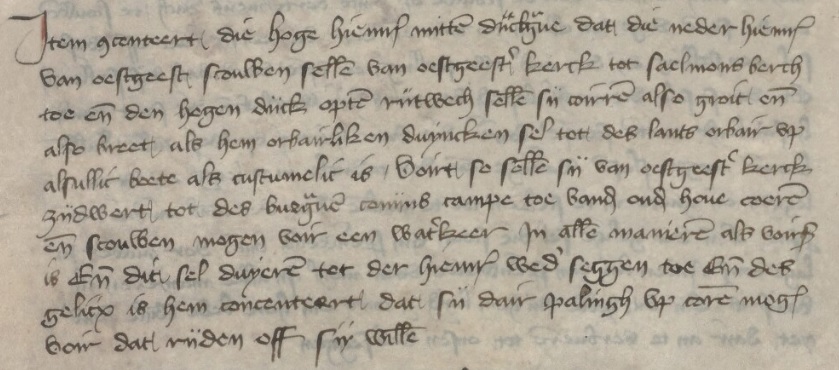 Item ꝯcenteert die hoge hiemrȝ mittē dijckgͣue dat die neder hiemrȝ
van oestgeest scouwen sellē van oestgeestˀ kerck tot saelmonsberch
toe eñ den hogen dijck optē rijtwech sellē sij coirrē also groit eñ
also breet als hem orbairliken duyncken sel tot des lants orbair vp
alsullic boete als custumelic is Voirt so sellē sij van oestgeestˀ kerck
zijdwert tot des burgͣuē conijns campe toe vandˀ oudˀ houe coerē
eñ scouwen mogen voir een watˀkeer In allē manierē als voirsȝ
is Eñ dit sel duyerē tot der hiemrȝ wedˀ seggen toe Eñ des
gelicx is hem concenteert dat sij dair palingh vp corē mogȝ
voir dat rijden off sij willē